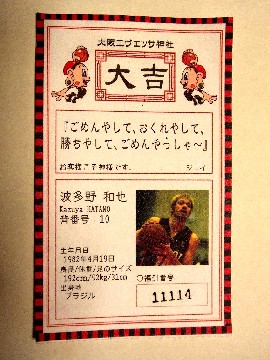 大阪エヴェッサ神社
大吉
『ごめんやして、おくれやして、
勝ちやして、ごめんやっしゃ〜』
お客様こそ神様です。 ジェイ
波多野 和也
Kazuya HATANO
背番号 10
生年月日
1982年4月19日
身長/体重/足のサイズ
192cm/92kg/31cm
出身地
ブラジル
○福引番号
11114